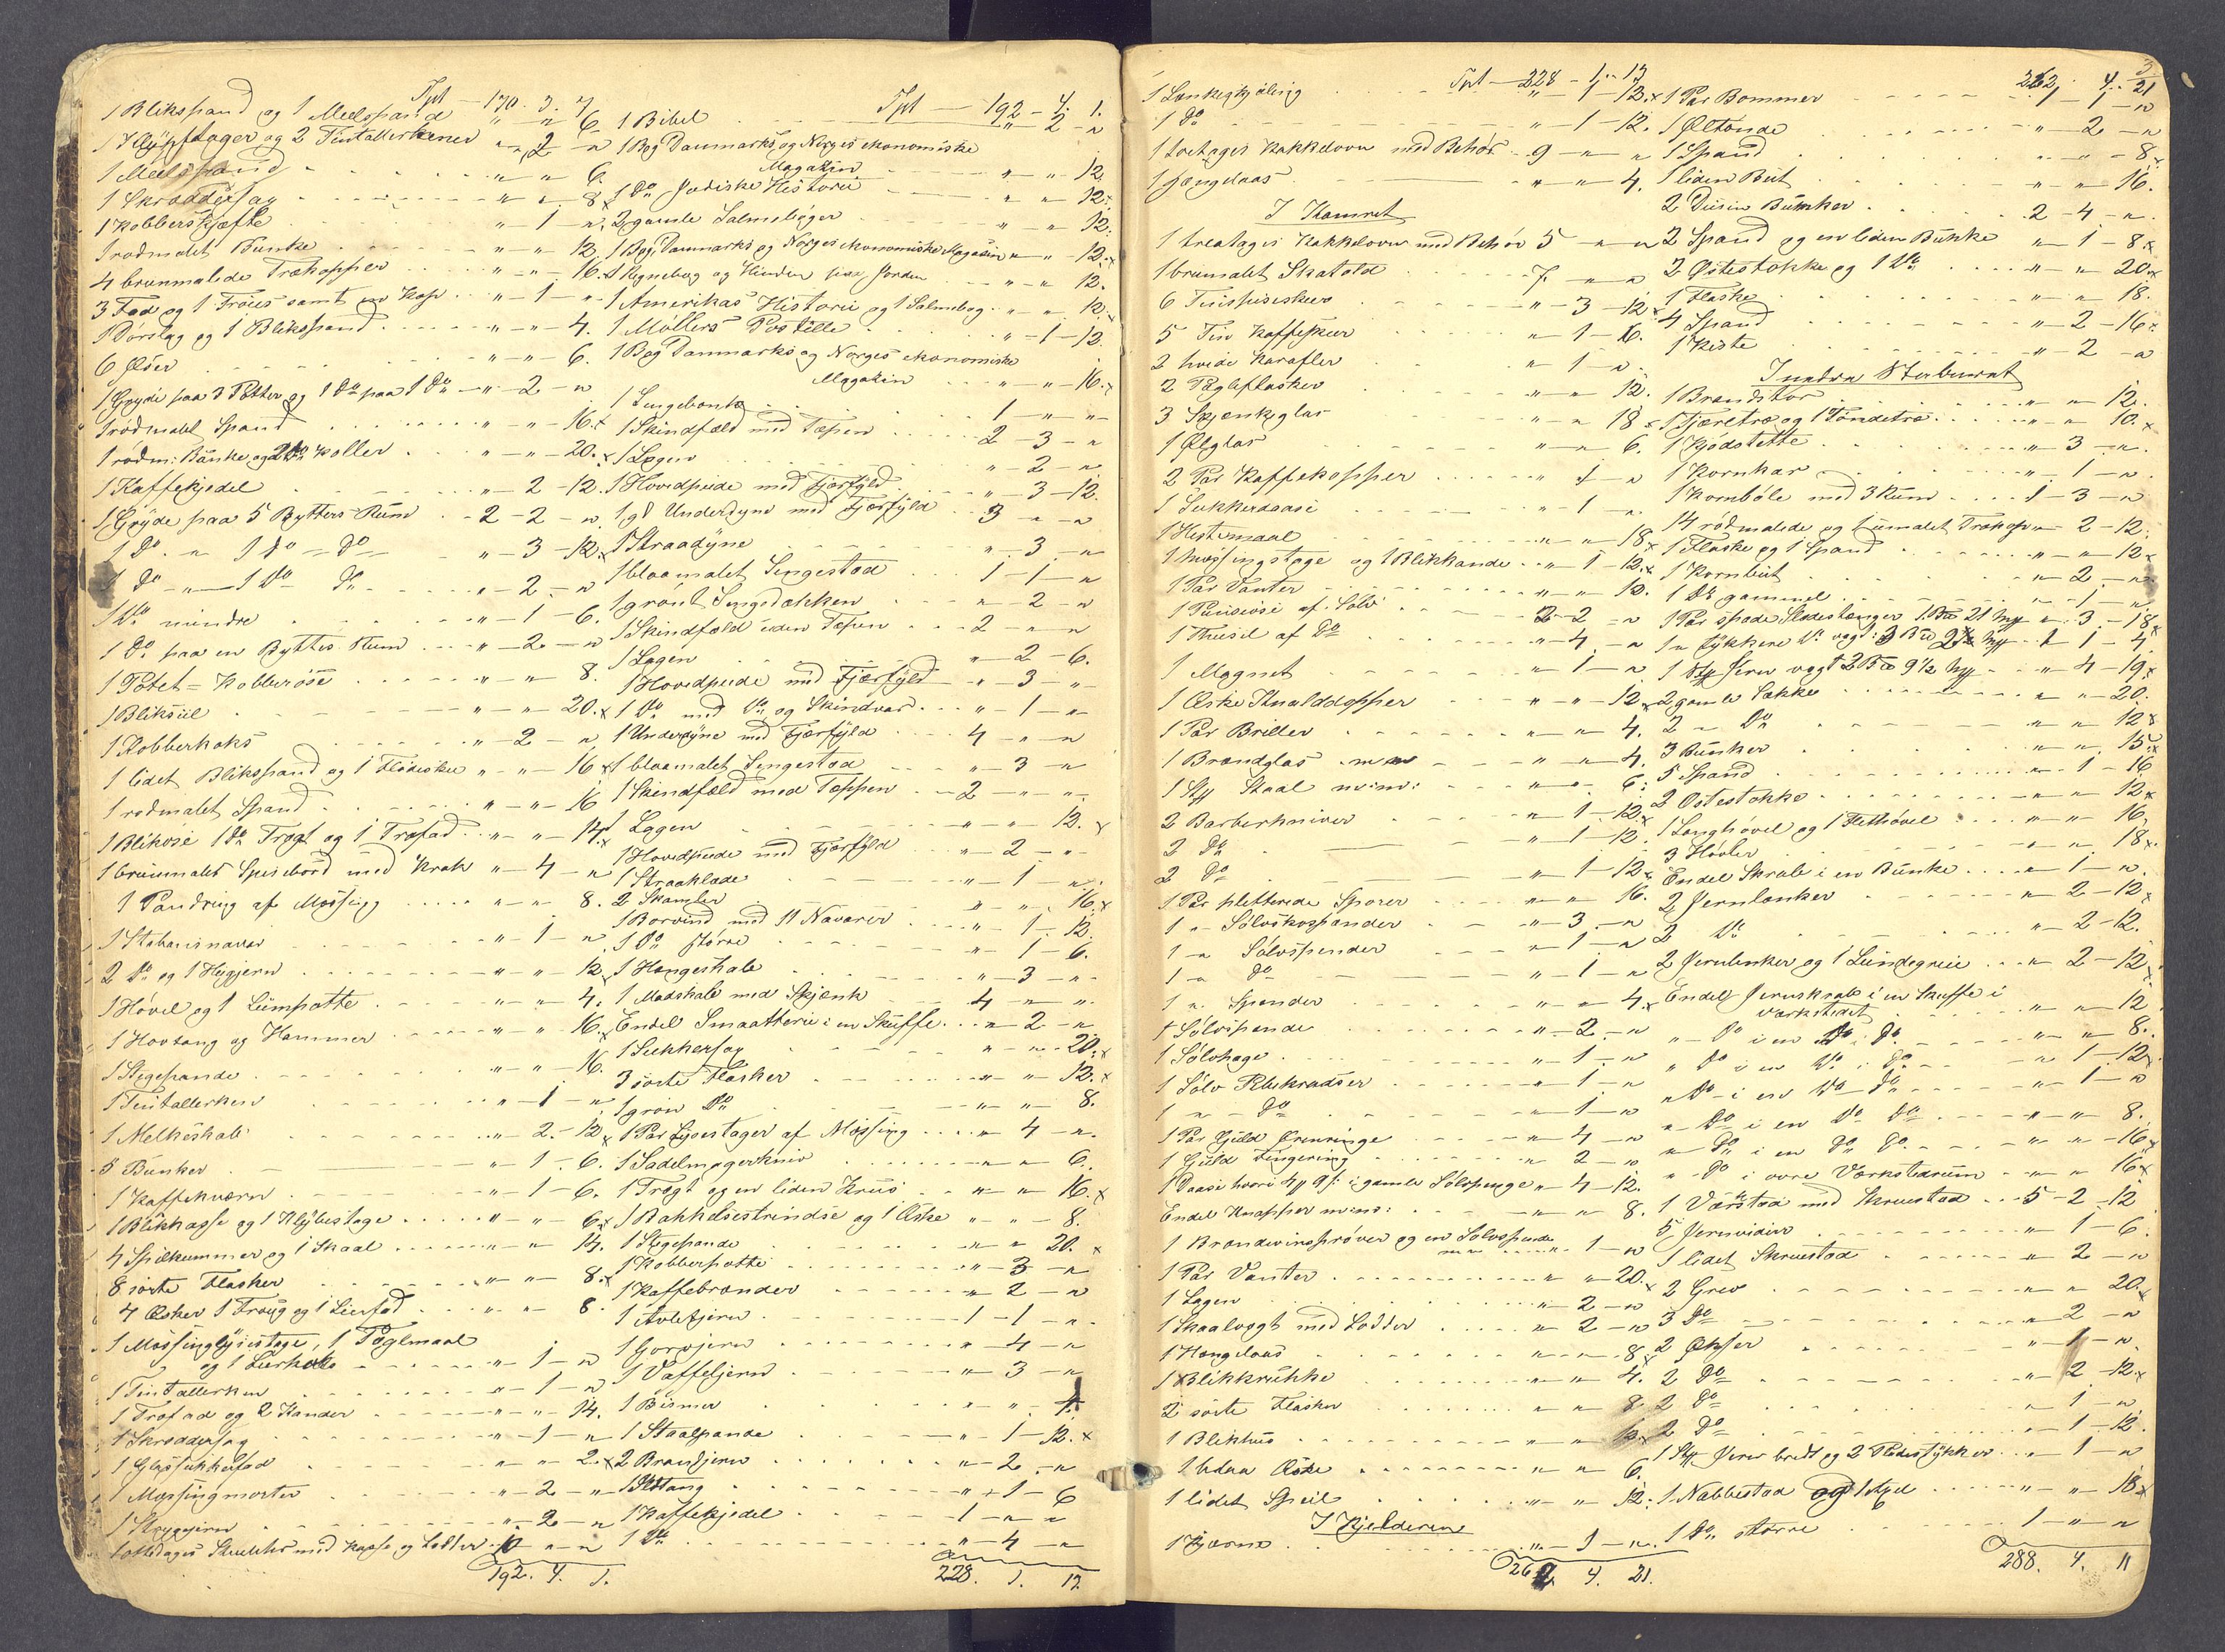 Tpt — 170. 3. 7
1 Blikspand og 1 Meelspand " " 6
1 Klyptager og 2 Tintallerkener " 2 "
1 Meelspand " " 6.
1 Skræddersax " " 8
1 Kobberskjæfte " 1 "
1 rødmalet Bunke " " 12
4 brunmalede Trækopper " " 16.
3 Fad og 1 Trous samt en Kop " 1 "
1 Dørslag og 1 Blikspand " " 4.
6 Øser " " 6.
1 Gryde paa 3 Potter og 1 Do paa 1 Do " 2 "
1 rødmalet Spand " " 16.
1 rødm: Bunke og 2 Do Koller " " 20.
1 Kaffekjedel " 2 - 12.
1 Gryde paa 5 Bytters Rum 2 - 2 - "
1 Do " 1 Do = Do " 3 - 12
1 Do " 1 Do Do " 2 "
1 Do mindre " 1 - 6.
1 Do paa en Byttes Rum " 2 "
1 Potet = Kobberøse " " 8.
1 Bliksiil " " 20.
1 Kobberkoks " 2 "
1 lidet Blikspand og 1 Flødeske " " 16
1 rødmalet Spand " " 16
1 Bliköse 1 Do Tragt og 1 Træfad " " 14.
1 brunmalet Spisebord med Krak " 4 "
1 Pandring af Messing " " 8.
1 Stabursnavar " 1 "
2 Do og 1 Hugjern " " 12
1 Høvel og 1 Liimpotte " " 4.
1 Hovtang og Hammer " " 16.
1 Stegepande " " 16.
1 Tintallerken " 1 "
1 Melkeskab " 2 - 12
8 Bunker " 1 - 6.
1 Kaffekværn " 1 - 6.
1 Blikkasse og 1 Klybestage " " 6
4 Spilkummer og 1 Skaal " " 14.
8 sorte Flasker " " 8.
4 Æsker 1 Traug og 1 Leerfad " " 8.
1 Messinglysestage, 1 Pæglmaal
og 1 Leerkrukke " 1 "
1 Tintallerken " 1 "
1 Træfad og 2 Kander " " 14.
1 Skræddersax " 1 "
1 Glassukkerfad " " 2.
1 Messingmorter " 2 "
1 Strygejern " 2 "
1 ottedages Stueuhr med Kasse og Lodder 10 " "
192. 4. 1.
Tpt — 192 - 4. 1.
1 Bibel " 2 "
1 Bog Danmarks og Norges økonomiske
Magazin " " 12.
1 Do Jødiske Historie " " 12.
2 gamle Salmebøger " " 12.
1 Bog, Danmarks og Norges økonomiske Magazin " " 12.
1 Regnebog og Kunden paa Jorden " " 12.
1 Amerikas Historie og 1 Salmebog " " 12.
1 Møllers Postille " 1 - 12.
1 Bog Danmarks og Norges økonomiske
Magazin " " 16.
1 Sengebænk 1 " "
1 Skindfæld med Tæpen 2 - 3 - "
1 Lagen " 2 "
1 Hovedpude med Fjærfyld " 3 - 12.
1 gl Underdyne med Fjærfyld 3 " "
1 Straadyne " 3 "
1 blaamalet Sengestad 1 - 1 - "
1 grønt Sengedækken " 2 "
1 Skindfæld uden Tæpen 2 " "
1 Lagen " 2 - 6.
1 Hovedpude med Fjærfyld " 3 "
1 Do med Do og Skindvar " 1 "
1 Underdyne med Fjærfyld 4 " "
1 blaamalet Sengestad " 3 "
1 Skindfæld med Tæppen 2 " "
1 Lagen " " 12.
1 Hovedpude med Fjærfyld " 2 "
1 Straaklæde " 1 "
2 Skamler " " 16
1 Borvind med 11 Navarer " 1 - 12.
1 Do større " 1 - 6.
1 Hængeskab " 3 "
1 Madskab med Skjænk 4 " "
Endel Smaatterie i en Skuffe " 2 "
1 Stikkersag " " 20.
3 sorte Flasker " " 12.
1 grøn Do " " 8.
1 Par Lysestager af Messing " 4 "
1 Sadelmagerkniv " " 6.
1 Tragt og en liden Kruus " " 16.
1 Bakkelsestrindse og 1 Æske " " 8.
1 Stegepande " " 20.
1 Kobberpotte " 3 "
1 Kaffebrænder " 2 "
1 Avletjern 1 - 1 - "
1 Gorojern " 4 "
1 Vaffeljern " 3 "
1 Bismer " " 4.
1 Staalpande " 1 - 12.
2 Brandjern " 2 "
1 Ildtang " 1 - 6
1 Kaffekjedel 1 " "
1 Do " 4 "
228. 1. 13.
Tpt — 228 - 1 - 13
1 Lænkekjæling " 1 - 12.
1 Do " 1 - 12.
1 toetages Kakkelovn med Behør 9 " "
1 Hængelaas " " 4.
I Kamret
1 treetages Kakkelovn med Behør 5 " "
1 brunmalet Skatold 7 " "
6 Tinspiseskeer " 3 - 12
5 Tin Kaffeskeer " 1 - 16.
2 hvide Karafler " 1 "
2 Pægleflasker " " 12.
3 Skjænkglas " " 18
1 Ølglas " " 6.
2 Par Kaffekopper " 1 "
1 Sukkerdaase " 1 "
1 Hestemaal " " 18
1 Messingstage og 1 Blikkande " 1 - 12.
1 Par Vanter " " 12.
1 Punseøse af Sølv 2 - 2 - "
1 Theesil af Do " 4 "
1 Magnet " 1 "
1 Æske Knaldopper " " 12
1 Par Briller " " 4.
1 Brændglas " " 4.
1 Stk Staal m:m: " " 6.
2 Barberkniver " 1 - 12.
2 Do " 1 - 12.
2 Do " 1 - 12
1 Par pletterede Sporer " " 16.
1 " Sølvskospænder " 3 "
1 " Sølvspænder " 1 "
1 " Do " 1 "
1 " Spænder " " 4
1 Sølvspænde " 2 "
1 Sølvhage " 1 "
1 Sølv Pibekradser " 1 "
1 " Do " 1 "
1 Par Guld Ørenringe " 4 "
1 Guld Fingerring " 2 "
1 Daase hvori i gamle Sølvpenge " 4 - 12.
Endel Knapper m:m: " " 8.
1 Brændevinsprøver og en Sølvspænde " 1 "
1 Par Vanter " " 20.
1 Lagen " 2 "
1 Skaalvægt med Lodder " 2 "
1 Hængelaas " " 8
1 Blikkrukke " " 4.
2 sorte Flasker " " 8
1 Blikhus " " 12
1 Æske " " 6.
1 lidet Speil " " 12.
I Kjelderen
1 Kjærne " 1 "
262 4. 21.
262. 4. 21
3
1 Par Bommer 1 - 1 - "
1 Øltønde " 2 "
1 Spand " " 8
1 liden Bøt " " 16.
2 Dusin Bunker 2 - 4 - "
2 Spand og en liden Bunke " 1 - 8
2 Ostestokke og 1 Do " " 20.
1 Flaske " " 18.
4 Spand " 2 - 16
1 Kiste " 2 "
I nedre Stabburet
1 Brandstør " " 12.
1 Tjæretræ og 1 Tøndetræ " " 10.
1 Kjødstette " 3 "
1 Kornkar " 1 "
1 Kornbøle med 3 Rum 1 - 3 - "
14 rødmalede og 1 umalet Trækop " 2 - 12.
1 Flaske og 1 Spand " " 12
1 Kornbøt " 2 "
1 Do gammel " 1 "
1 Par spade Slædestænger " 3 - 18
1 " tykkere Do 1 - 1 - 4.
1 Stk Jern vægt " 4 - 19
2 gamle Sække " " 20.
2 " Do " " 12
3 Bunker " " 15.
5 Spand " 1 - 16
2 Ostestokke " " 12
1 Langhøvel og 1 Fletthøvel " " 16.
3 Høvler " " 18
Endel Skrab i en Bunke " 1 "
2 Jernlænker " 2 - 12
2 Do " 2 - 12.
2 Jernlenker og 1 Lundegreie " 2 - 12
Endel Jernskrab i en Skuffe i
værkstedet " " 12
" Do i en Do i Do " " 8.
" Do i en Do i Do " 1 - 12
" Do i en Do Do " 1 "
" Do i en Do Do " " 8.
" Do i en Do Do " " 16
" Do i øvre Værkstedrum " " 16
1 Værstad med Skruestad 5 - 2 - 12
5 Jernvidier " 1 - 6.
1 lidet Skruestad " 2 "
2 Grev " " 20.
3 Do " 2 "
2 Økser " 1 "
2 Do " 2 - 12.
2 Do " 1 "
2 Do " 1 - 12.
1 Stk Jern bredt og 2 " 1 "
1 Nabbestad og 1 " " 18
1 Do større 1 " "
288. 4. 11